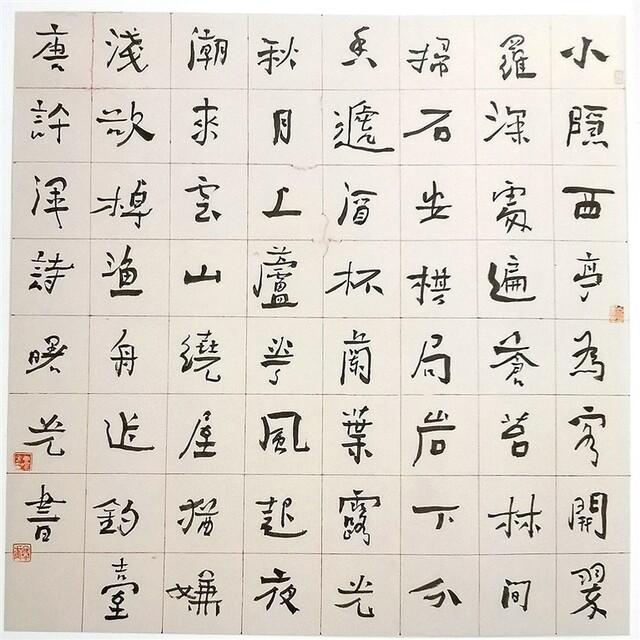 小隱西亭為客開翠
羅深處遍蒼苔林間
掃石安棋局岩下分
香遞酒杯蘭葉露光
秋月上蘆華風起夜
潮來雲山繞屋猶嫌
淺欲棹漁舟近釣臺
唐許渾詩曙光書